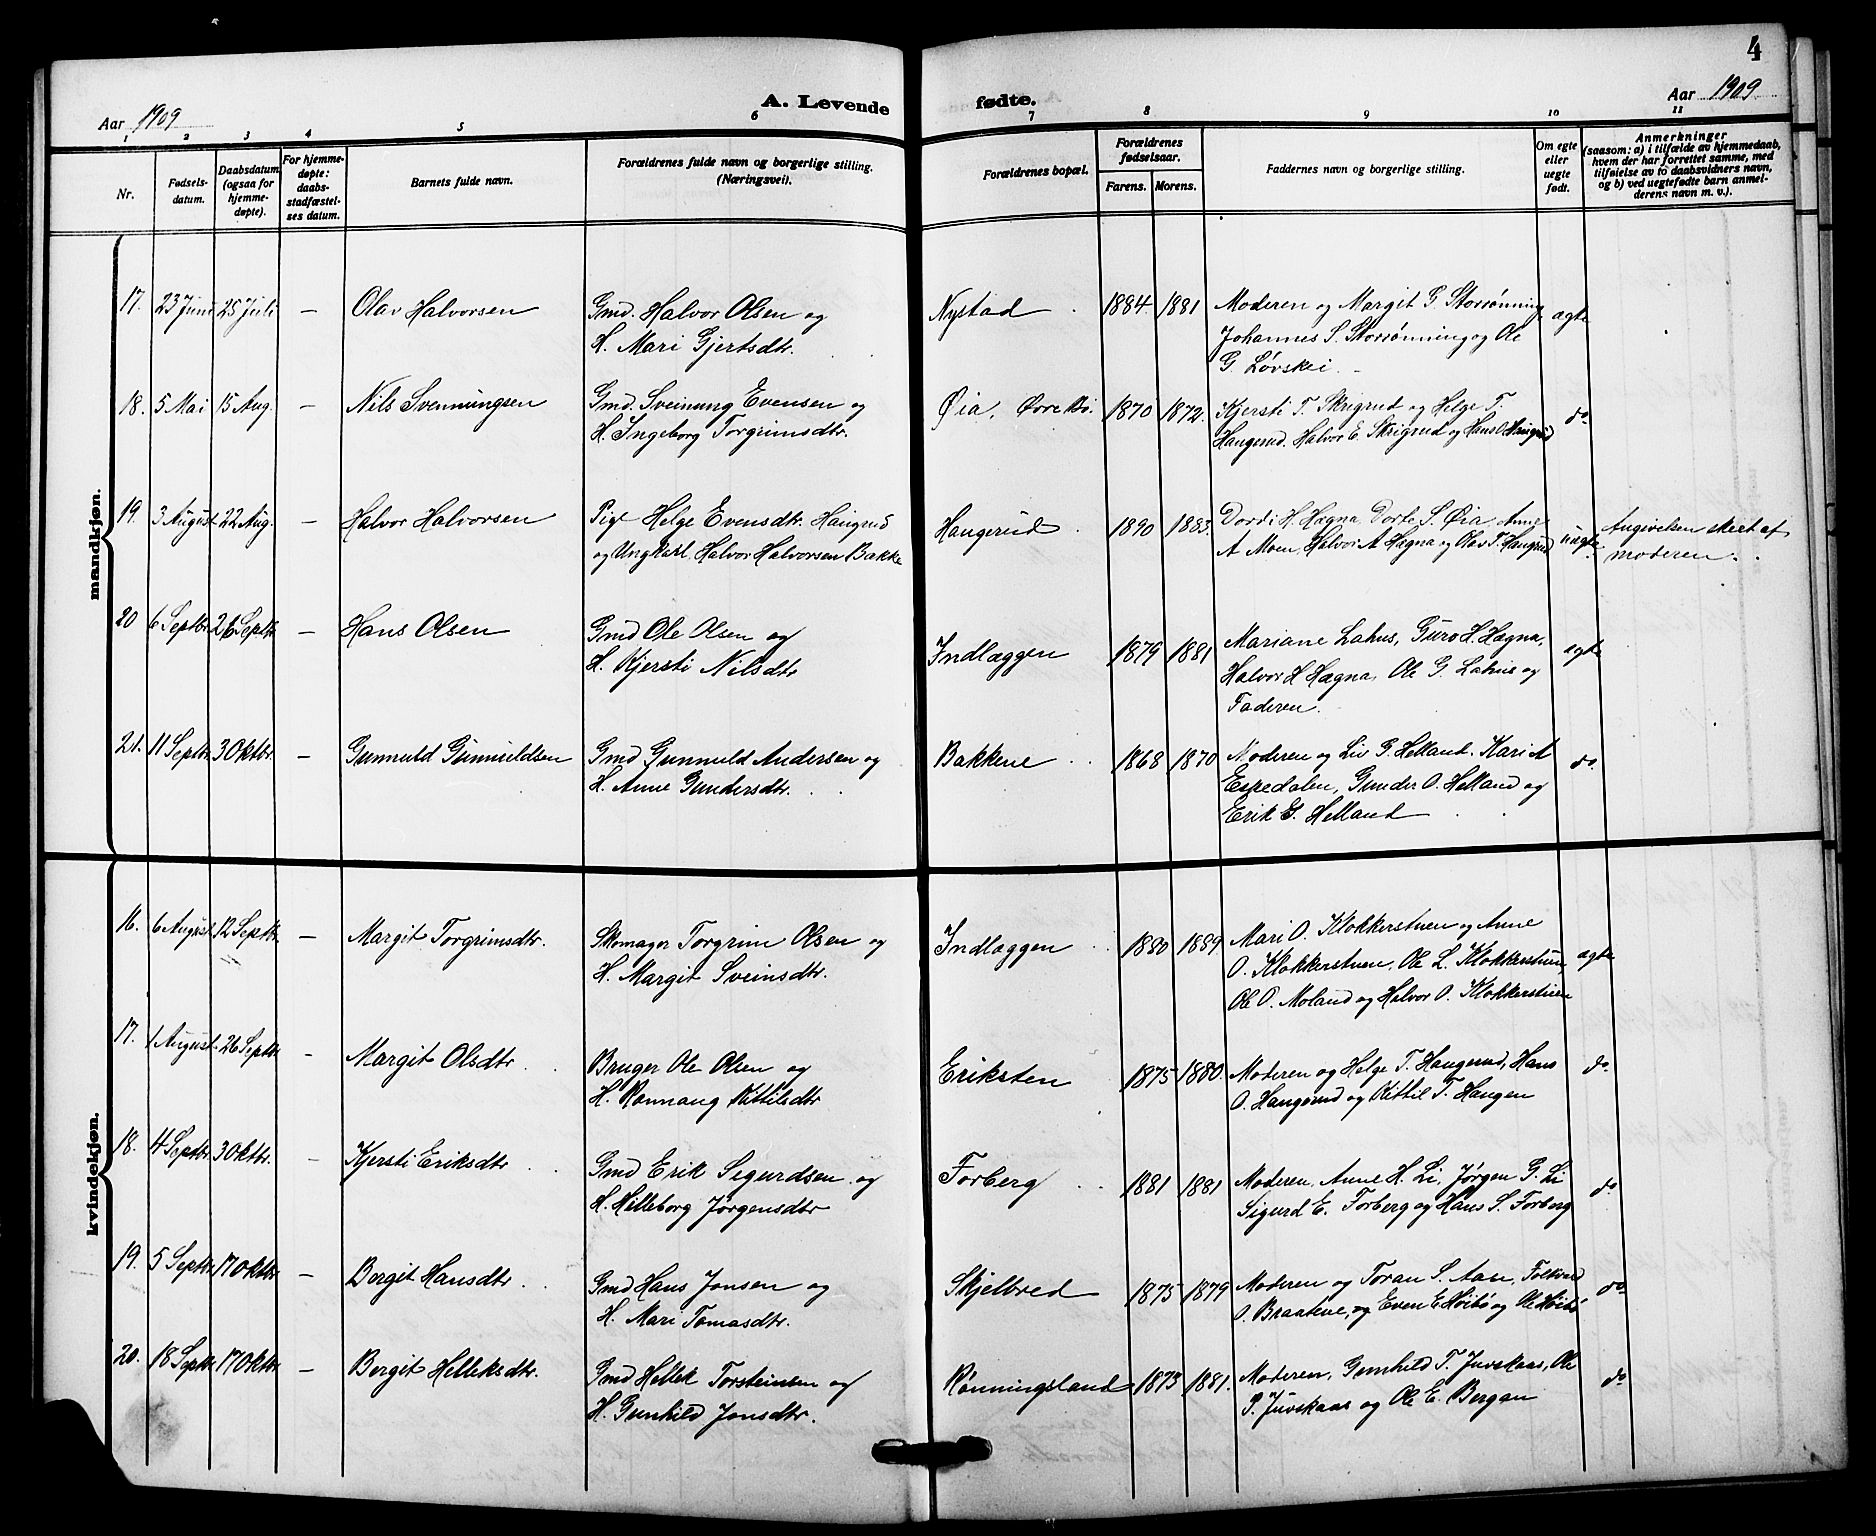 4
Aar 1909
A. Levende fødte.
Aar 1909
1 2 3 4 5 6 7 8 9 10 11
Nr.
Fødsels-
datum.
Daabsdatum
(ogsaa for
hjemme-
døpte).
For hjemme-
døpte:
daabs-
stadfæstel-
ses datum.
Barnets fulde navn.
Forældrenes fulde navn og borgerlige stilling.
(Næringsvei).
Forældrenes bopæl.
Forældrenes
fødselsaar.
Farens. Morens.
Faddernes navn og borgerlige stilling.
Om egte
eller
uegte
født.
Anmerkninger
(saasom: a) i tilfælde av hjemmedaab,
hvem der har forrettet samme, med
tilføielse av to daabsvidners navn,
og b) ved uegtefødte barn anmel-
derens navn m. v.).
mandkjøn.
17. 23 Juni 25 Juli — Olav Halvorsen
Gmd. Halvor Olsen og
H. Mari Gjertsdtr.
Nystad 1884 1881
Moderen og Margit G. Storrønning
Johannes S. Storrønning og Ole
G. Løvskei
ægte
18. 5 Mai 15 Aug. — Nils Svennungsen
Gmd. Sveinung Evensen og
H. Ingeborg Torgrimsdtr.
Øia, Øvre Bø. 1870 1872.
Kjersti T. Skrigrud og Helge T.
Haugerud. Halvor E. Skrigrud og Hans O. Haugrud
do
19. 3 August 22 Aug. — Halvor Halvorsen
Pige Helge Evensdtr. Haugrud
og Ungkarl Halvor Halvorsen Bakke
Haugerud 1890 1883.
Dordi H. Hægna, Dorte S. Øia, Anne
A Moen, Halvor A Hægna og Olav T. Haugrud
uægte
Angivelsen skeet af
moderen.
20 6 Septbr. 26 Septbr — Hans Olsen
Gmd Ole Olsen og
H. Kjersti Nilsdtr
Indlæggen 1879 1881
Mariane Lahus, Guro H. Hægna,
Halvor H Hægna, Ole G. Lahus og
Faderen.
ægte
21. 11 Septbr. 3 Oktbr. — Gunnuld Gunnuldsen
Gmd Gunnuld Andersen og
H. Anne Gundersdtr.
Bakkene 1868 1870
Moderen og Liv G. Helland. Kari A
Espedalen, Gunder O. Helland og
Erik G. Helland
do.
kvindekjøn.
16. 6 August 12 Septbr. — Margit Torgrimsdtr.
Skomager Torgrim Olsen og
H. Margit Sveinsdtr.
Indlæggen 1880 1889
Mari O. Klokkerstuen og Anne
O. Klokkerstuen, Ole L. Klokkerstuen,
Ole O. Moland og Halvor O. Klokkerstuen
ægte
17. 1 August 26 Septbr — Margit Olsdtr
Bruger Ole Olsen og
H. Rannaug Kittilsdtr
Eriksten 1875 1880.
Moderen og Helge T. Haugerud, Hans
O. Haugerud og Kittil T. Haugen
do.
18. 4 Septbr. 3 Oktbr. — Kjersti Eriksdtr
Gmd Erik Sigurdsen og
H. Helleborg Jørgensdtr
Forberg 1881 1881
Moderen, Anne H. Li, Jørgen G. Li
Sigurd E. Forberg og Hans S. Forberg
do
19. 5 Septbr. 17 Oktbr — Bergit Hansdtr.
Gmd Hans Jonsen og
H. Mari Tomasdtr.
Skjelbred 1875 1879
Moderen og Toran S. Aase,
O. Braatene, og Even E Høibø og Ole Høibø
do.
20. 18 Septbr 17 Oktbr. — Bergit Helleksdtr.
Gmd Hellek Torsteinsen og
H. Gunhild Jonsdtr.
Rønningsland 1873 1881.
Moderen, Gunhild T. Juvskaas, Ole
T. Juvskaas og Ole E. Bergan
do